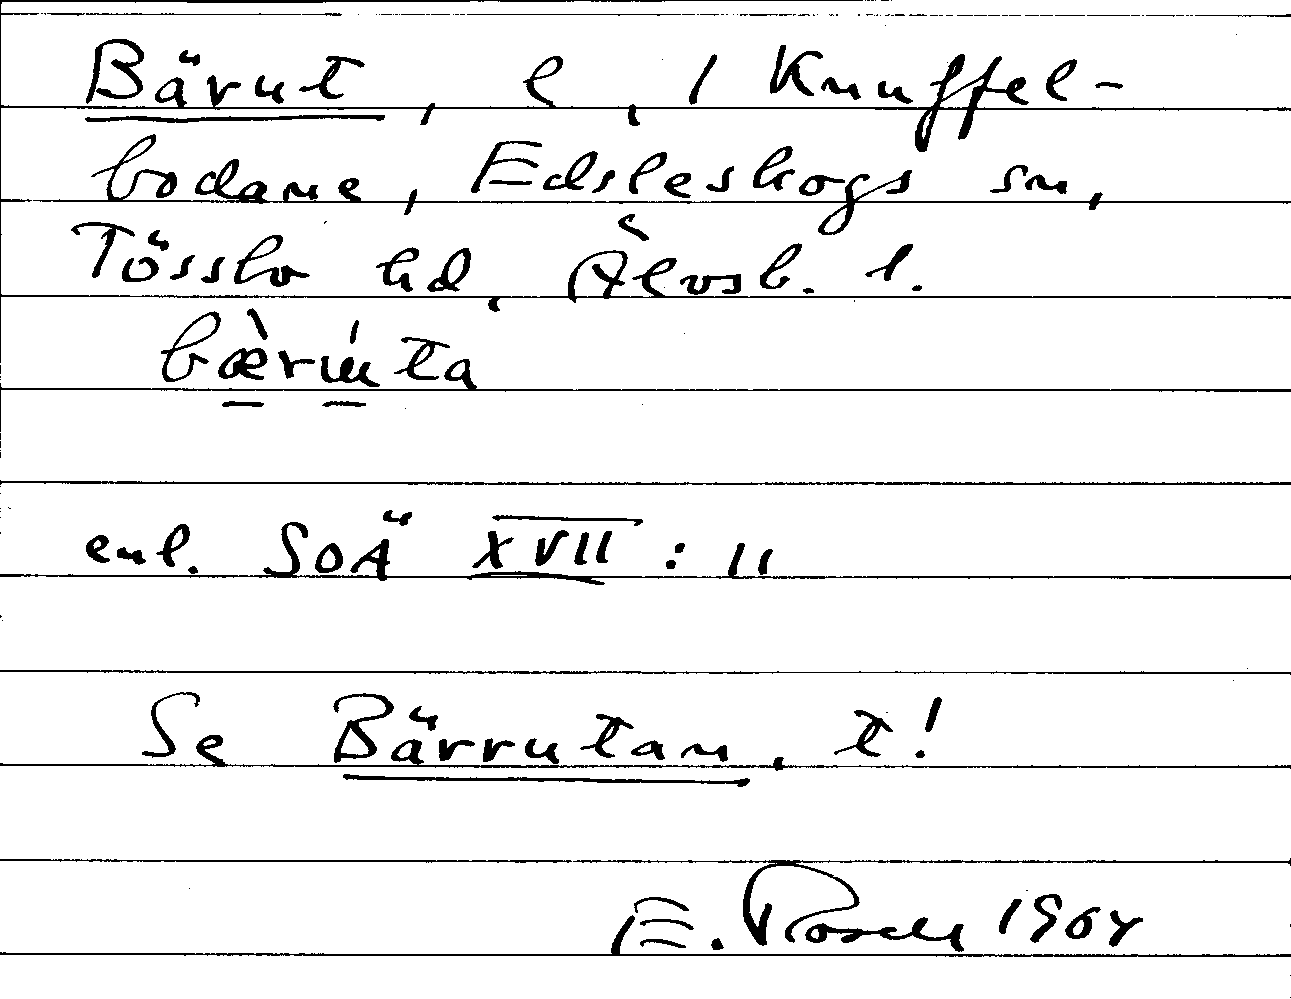 Bärut, l, / Knuffel-
bodane, Edsleskogs sn,
Tössbo hd, Älvsb. l.
bærɯta
enl. SOÄ XVII : 11
Se Bärrutan, t!
E. 1964